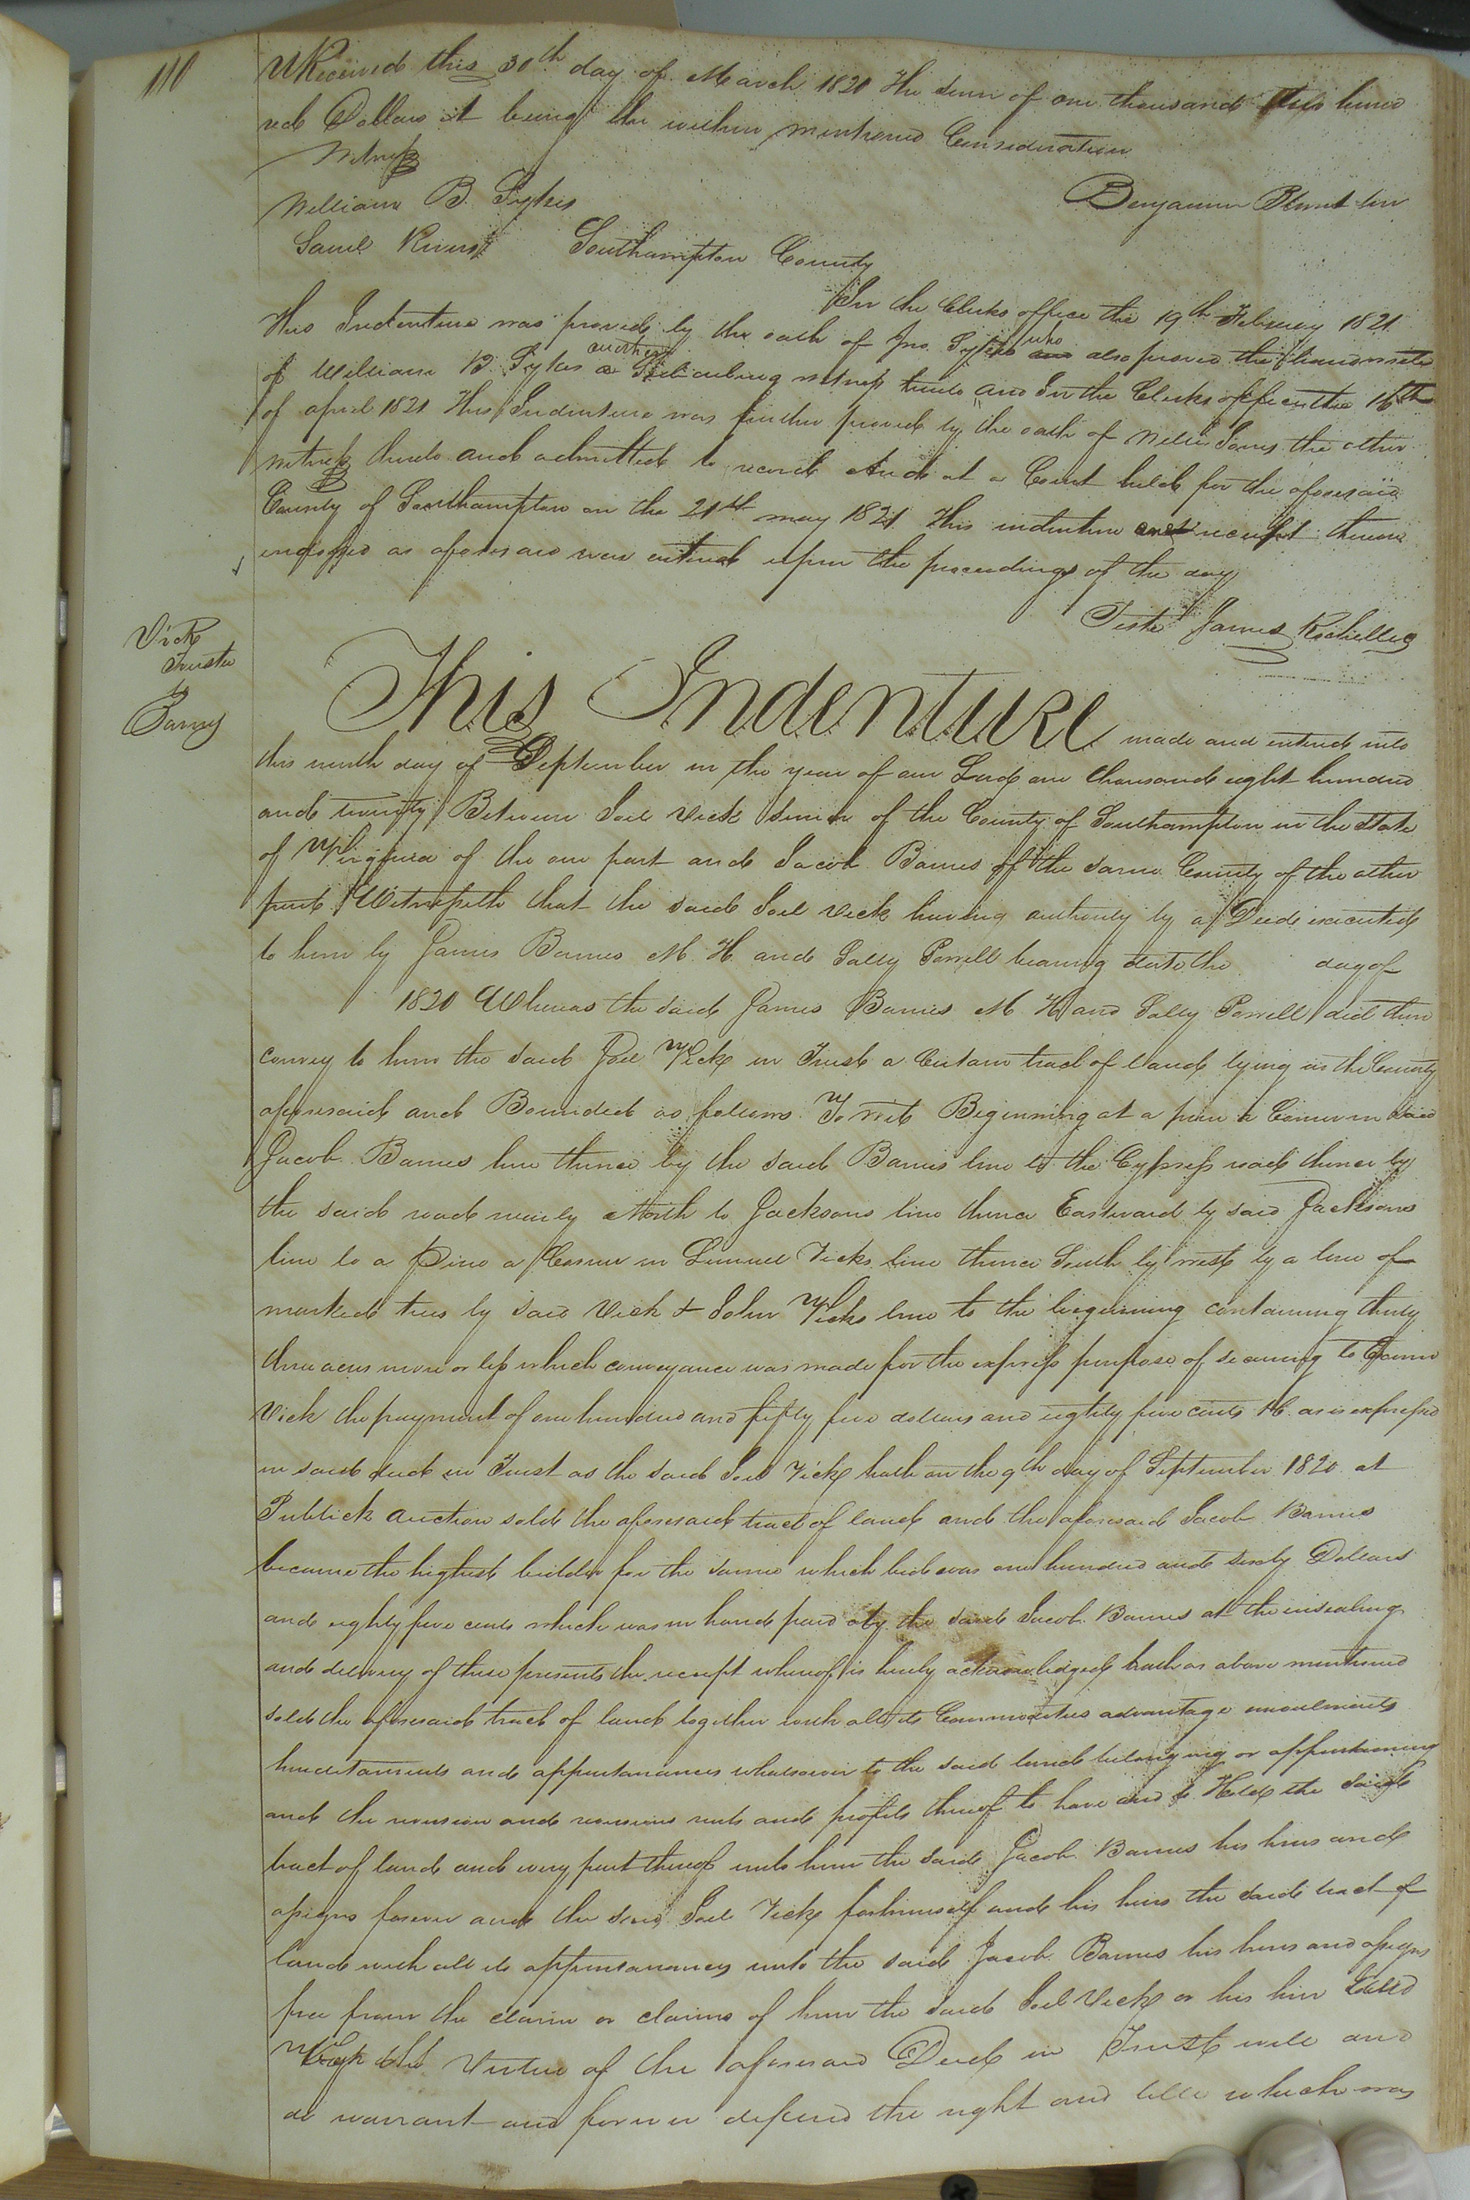 110
Received this 30th day of March 1820 the sum of one thousand two hund
red Dollars it being the within mentioned Consideration
Witness
William B. Sykes
Benjamin Blunt Sen
Saml Rivers
Southampton County
In the Clerks office the 19th February 1821
This Indenture was proved by the oath of Jno. Sykes who also proved the handwrite
of William B. Sykes another Subscribing witness thereto and In the Clerks office on the 16th
of april 1821 This Indenture was further proved by the oath of the other
witness thereto and admitted to record And at a Court held for the aforesaid
County of Southampton on the 21st may 1821 This indenture and receipt thereon
endorsed as aforesaid were entered upon the proceedings of the day
Teste James Rochelle
Vick
Trustee
To
Barnes
This Indenture made and entered into
this ninth day of September in the year of our Lord one thousand eight hundred
and twenty Between Joel Vick senior of the County of Southampton in the State
of Virginia of the one part and Jacob Barnes of the same County of the other
part Witnesseth that the said Joel Vick having authority by a Deed executed
to him by James Barnes M. H. and Sally Powell bearing date the day of
1820 Whereas the said James Barnes M H and Sally Powell did then
convey to him the said Joel Vick in Trust a Certain tract of land lying in the County
aforesaid and Bounded as follows To wit Beginning at a pine a Corner in said
Jacob Barnes line thence by the said Barnes line to the Cypress road thence by
the said road nearly North to Jacksons line thence Eastward by said Jacksons
line to a Pine a Corner in Lemuel Vicks line thence South by west by a line of
marked trees by said Vick & John Vicks line to the beginning containing thirty
three acres more or less which conveyance was made for the express purpose of securing to
Vick the payment of one hundred and fifty five dollars and eighty five cents as is expressed
in said deed in Trust as the said Joel Vick hath on the 9th day of September 1820 at
Publick auction sold the aforesaid tract of land and the aforesaid Jacob Barnes
became the highest bidder for the same which bid was one hundred and sixty Dollars
and eighty five cents which was in hand paid by the said Jacob Barnes at the insealing
and delivery of these presents the receipt whereof is hereby acknowledged hath as above mentioned
sold the aforesaid tract of land together with all its Commodities advantage emoulments
hereditaments and appurtanances whatsoever to the said land belonging or appertaining
and the reversion and reversions rents and profits thereof to have and to Hold the said
tract of land and every part thereof unto him the said Jacob Barnes his heirs and
assigns forever and the said Joel Vick for himself and his heirs the said tract of
land with all its appurtanances unto the said Jacob Barnes his heirs and assigns
free from the claim or claims of him the said Joel Vick or his heirs
Virtue of the aforesaid Deed in Trust will and
do warrant and forever defend the right and title which was